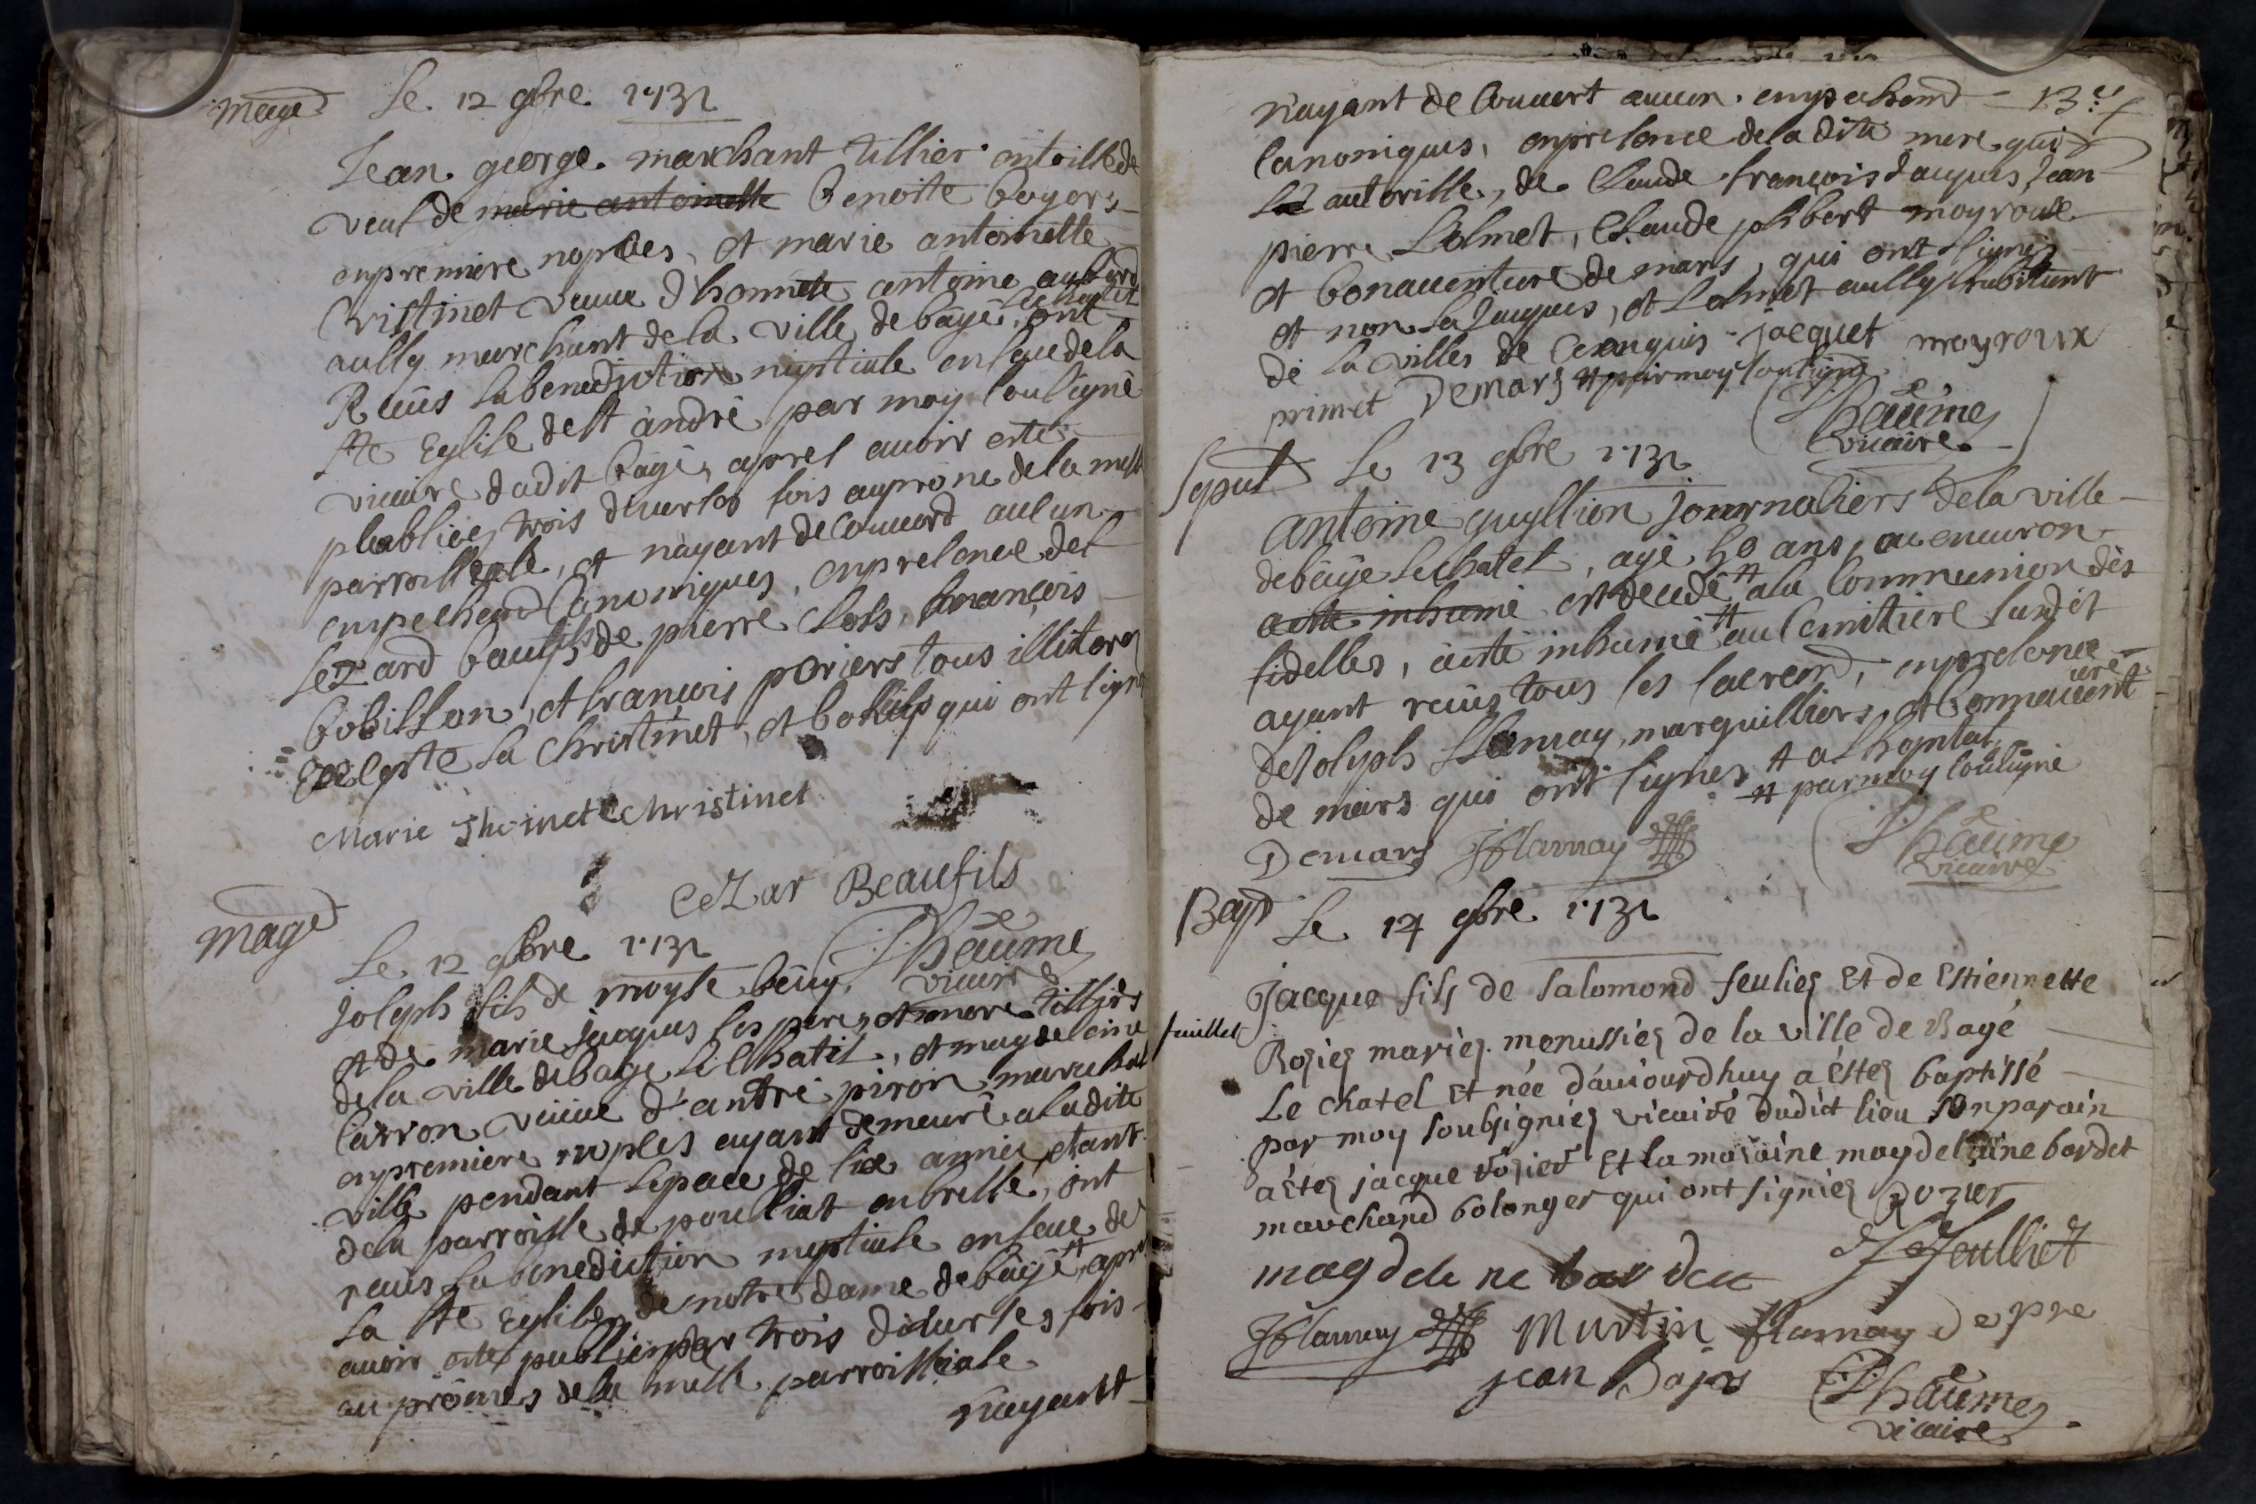 mage
Le 12 gbre 1732
Jean george marchant tillier
veuf de marie antoinette benoite boyer
en premiere nopces, et marie antoinette
Cristinet veuve d'honnete antoine
aussy marchant de la ville de bagé le chatel ont
Reçüs la benediction nuptiale en face de la
Ste Eglise de st andré par moy soussigné
vicaire dudit bagé, apres avoir esté
publiées trois diverses fois au prone de la messe
parroissiale, et nayant decouverd aucun
empechemd Canoniques, en presence de
Cezard baufils de pierre françois
bobillon, et francois periers tous illiteres
Excepte la Christinet, et bofils qui ont signe
Marie Thoinete christinet
ceZar Beaufils
Rhaüme
vicaire
mage
Le 12 gbre 1732
Joseph fils de moyse
et de marie jacques ses pere et mere
de la ville de bage le Chatel, et magdeleine
Carron veuve d'andré piron marechal
en premiere nopces ayant demeuré a la dite
ville pendant l'espace de six année, etant
de la parroisse de poulliat en bresse, ont
reçus la benediction nuptiale en face de
La Ste Eglise de notre dame de bagé apres
avoir esté publier par trois diverses fois
au prônes de la messe parroissiale
n'ayantt
n'ayant decouvert aucun empechemd 13e
Canoniques, en presence de la dite mere qui
La autorisse, de Claude françois Jacques, Jean
pierre Colmet, Claude philbert moyroux
et bonaventure de mars, qui ont signez
et non la Jacques, et Colmet aussy habitant
de la villes de jacquet moyroux
primet Demars et par moy soussigné
Rhaüme
vicaire
Sepul
Le 13 gbre 1732
antoine guyllion journaliers de la ville
de bâgé le chatel, agé 50 ans, ou environ
a esté inhumé est decedé a la Communion des
fidelles, a esté inhumé au Cemitiere sudit
ayant reçüs tous les sacremd, en presence
de Joseph flamay marguilliers, et bonnaventure
de mars qui ont signez a l'hopital
par moy soussigné
Demars JFlamay
Rhaüme
vicaire
Bap
Le 14 gbre 1732
Jacque fils de salomond feulies Et de Estiennette
feuillet
Rosies maries menussies de la ville de Bagé
Le chatel Et née d'aujourdhuy a estes baptissé
par moy soubsignies vicaire dudict lieu son parain
a etes jacque rosier Et la maraine magdelaine bardet
marchand bolonger qui ont signies Rozier
magdelene bardet
J Feulliet
JFlamay Martin flamay depre
jean
Rhaümes
vicaire